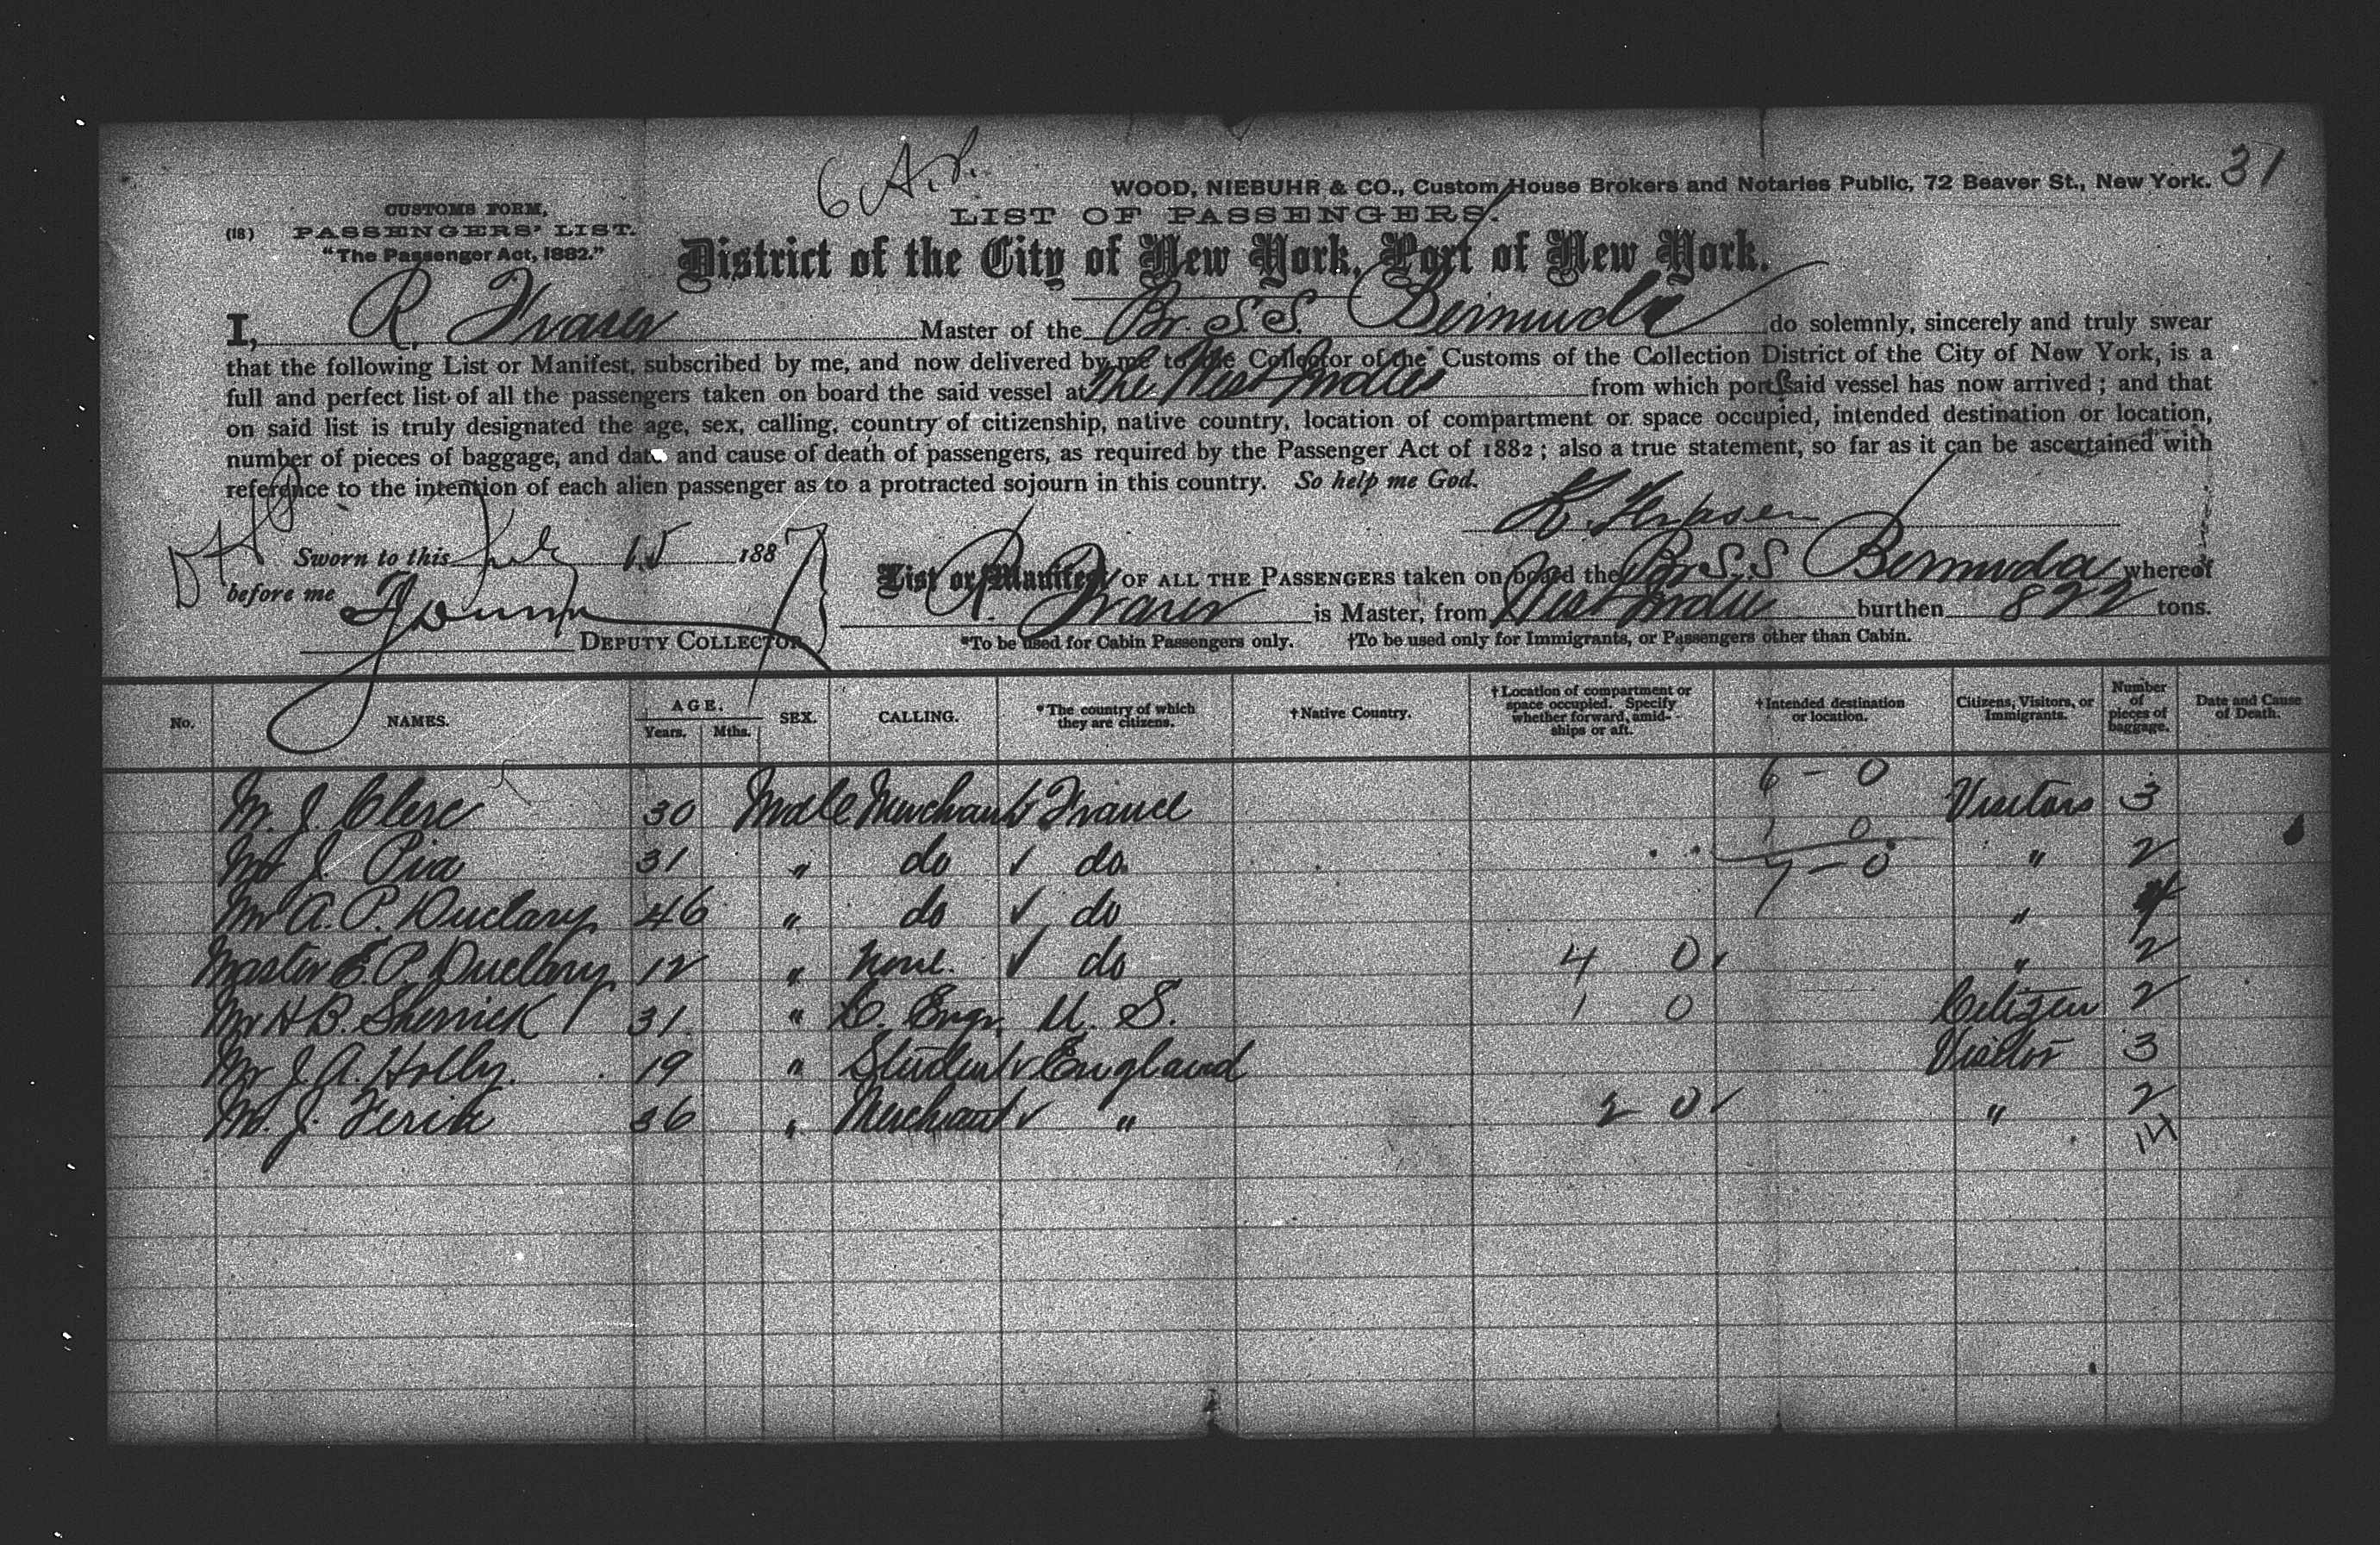 6 A.L.
WOOD, NIEBUHR & CO., Custom House Brokers and Notaries Public, 72 Beaver St., New York. 31
CUSTOMS FORM,
(18) PASSENGERS' LIST.
"The Passenger Act, 1882."
LIST OF PASSENGERS.
District of the City of New York, Port of New York.
I, R. Fraser Master of the Br. S S. Bermuda do solemnly, sincerely and truly swear
that the following List or Manifest, subscribed by me, and now delivered by me to the Collector of the Customs of the Collection District of the City of New York, is a
full and perfect list of all the passengers taken on board the said vessel at The West Indies from which port said vessel has now arrived ; and that
on said list is truly designated the age, sex, calling, country of citizenship, native country, location of compartment or space occupied, intended destination or location,
number of pieces of baggage, and date and cause of death of passengers, as required by the Passenger Act of 1882 ; also a true statement, so far as it can be ascertained with
reference to the intention of each alien passenger as to a protracted sojourn in this country. So help me God.
Sworn to this July 15 1887
before me
DEPUTY COLLECTOR
List or Manifest OF ALL THE PASSENGERS taken on board the Br S.S Bermuda whereof
R. Fraser is Master, from West Indies burthen 822 tons.
*To be used for Cabin Passengers only. †To be used only for Immigrants, or Passengers other than Cabin.
No. NAMES. AGE. Years. Mths. SEX. CALLING. *The country of which they are citizens. †Native Country. †Location of compartment or space occupied. Specify whether forward, amidships or aft. †Intended destination or location. Citizens, Visitors, or Immigrants. Number of pieces of baggage. Date and Cause of Death.
6 - 0
M. J. Clerc 30 Male Merchant France Visitors 3
1 0
Mr J. Pia 31 " do ✓ do. 7 - 0 " 2
Mr A. P. Duclary 46 " do ✓ do " 4
Master E. P. Duclary 12 " None. ✓ do 4 0 ✓ " 2
Mr H B. Sherrick 31 " C. Engr. U. S. 1 0 Citizen 2
Mr J. A. Holly. 19 " Student ✓ England Visitor 3
M. J. Ferik 36 " Merchant ✓ " 2 0 ✓ " 2
14